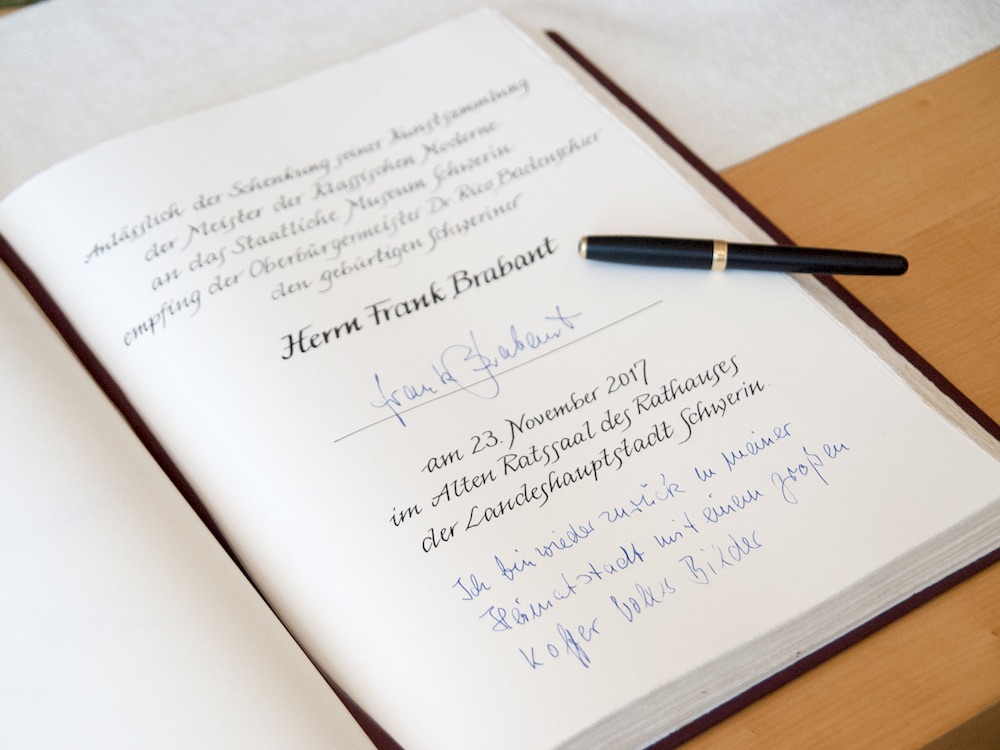 Anlässlich der Schenkung seiner Kunstsammlung
der Meister der Klassischen Moderne
an das Staatliche Museum Schwerin
empfing der Oberbürgermeister Dr Rico Badenschier
den gebürtigen Schweriner
Herrn Frank Brabant
Frank Brabant
am 23. November 2017
im Alten Ratssaal des Rathauses
der Landeshauptstadt Schwerin
Ich bin wieder zurück in meiner
Heimatstadt mit einem großen
Koffer volles Bilder